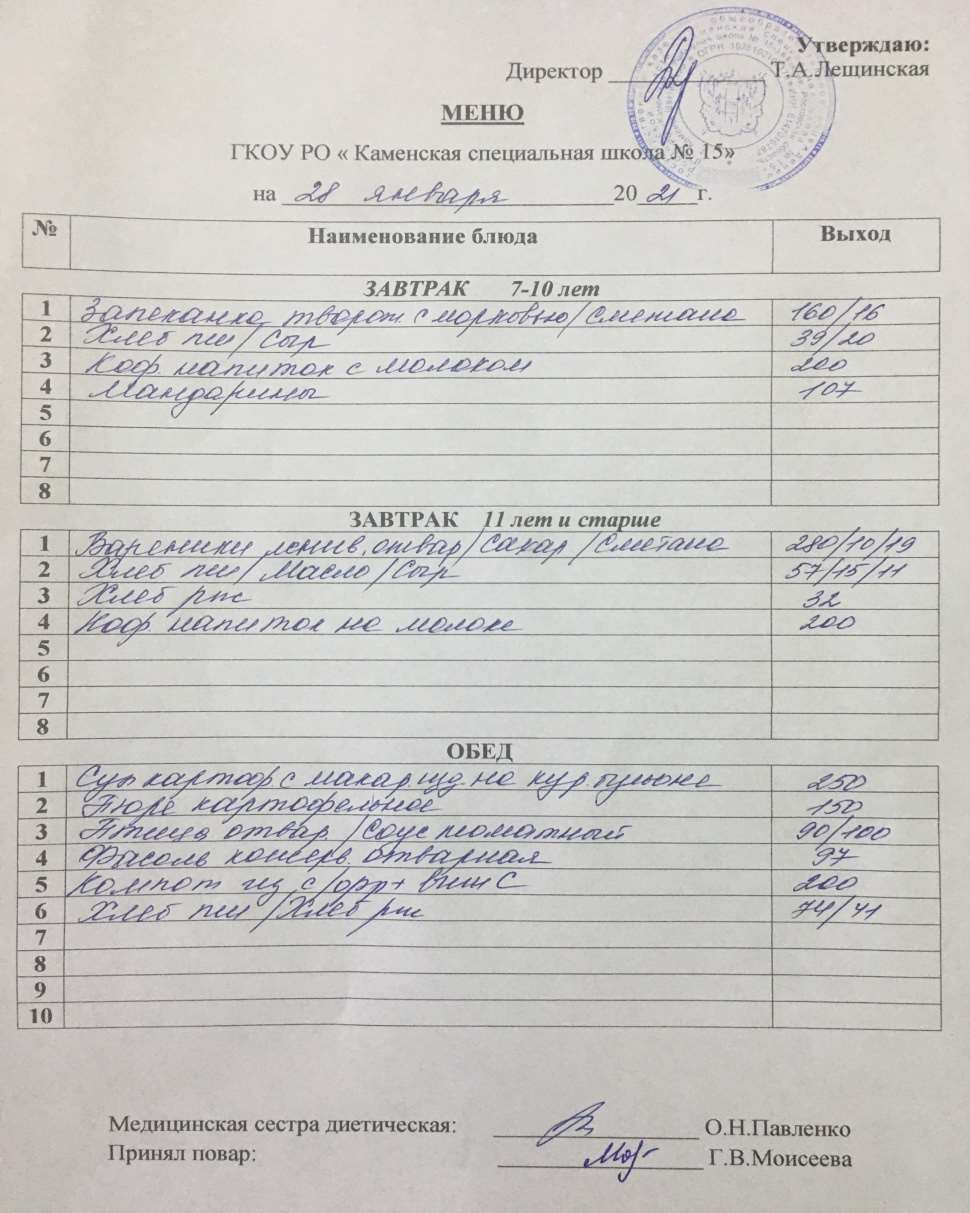 Утверждаю:
Директор Т.А.Лещинская
МЕНЮ
ГКОУ РО « Каменская специальная школа № 15»
на 28 января 2021 г.
№ Наименование блюда Выход
ЗАВТРАК 7-10 лет
1 Запеканка творож. с морковью/Сметана 160/16
2 Хлеб пш/Сыр 39/20
3 Коф. напиток с молоком 200
4 Мандарины 107
5
6
7
8
ЗАВТРАК 11 лет и старше
1 Вареники ленив. отвар/Сахар/Сметана 280/10/19
2 Хлеб пш/Масло/Сыр 57/15/11
3 Хлеб рж 32
4 Коф. напиток на молоке 200
5
6
7
8
ОБЕД
1 Суп картоф. с макар. изд. на кур. бульоне 250
2 Пюре картофельное 150
3 Птица отвар./Соус томатный 90/100
4 Фасоль консерв. отварная 97
5 Компот из с/фр + вит С 200
6 Хлеб пш/Хлеб рж 74/41
7
8
9
10
Медицинская сестра диетическая: О.Н.Павленко
Принял повар: Г.В.Моисеева